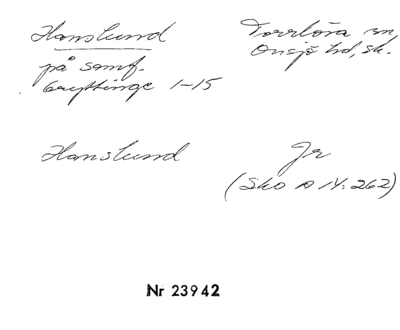 Hanslund
Torrlösa sn,
Onsjö hd, sk.
på samf.
Gryttinge 1-15
Hanslund
Jr
(Sko A IV: 262)
Nr 23942